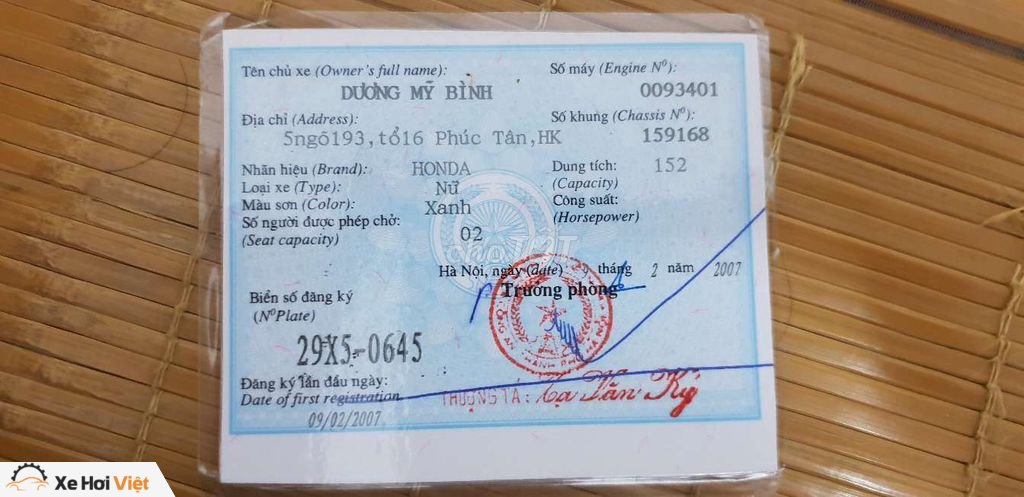 Tên chủ xe (Owner's full name):
DƯƠNG MỸ BÌNH
Số máy (Engine Nº):
0093401
Địa chỉ (Address):
5ngõ193,tổ16 Phúc Tân,HK
Số khung (Chassis Nº):
159168
Nhãn hiệu (Brand): HONDA
Dung tích: 152
(Capacity)
Loại xe (Type): Nữ
Màu sơn (Color): Xanh
Công suất:
(Horsepower)
Số người được phép chở:
(Seat capacity) 02
chợTỐT
Hà Nội, ngày (date) tháng 2 năm 2007
Trưởng phòng
Biển số đăng ký
(NºPlate)
29X5-0645
Đăng ký lần đầu ngày:
Date of first registration
09/02/2007
THƯỢNG TÁ: Tạ Văn Kỷ
Xe Hơi Việt